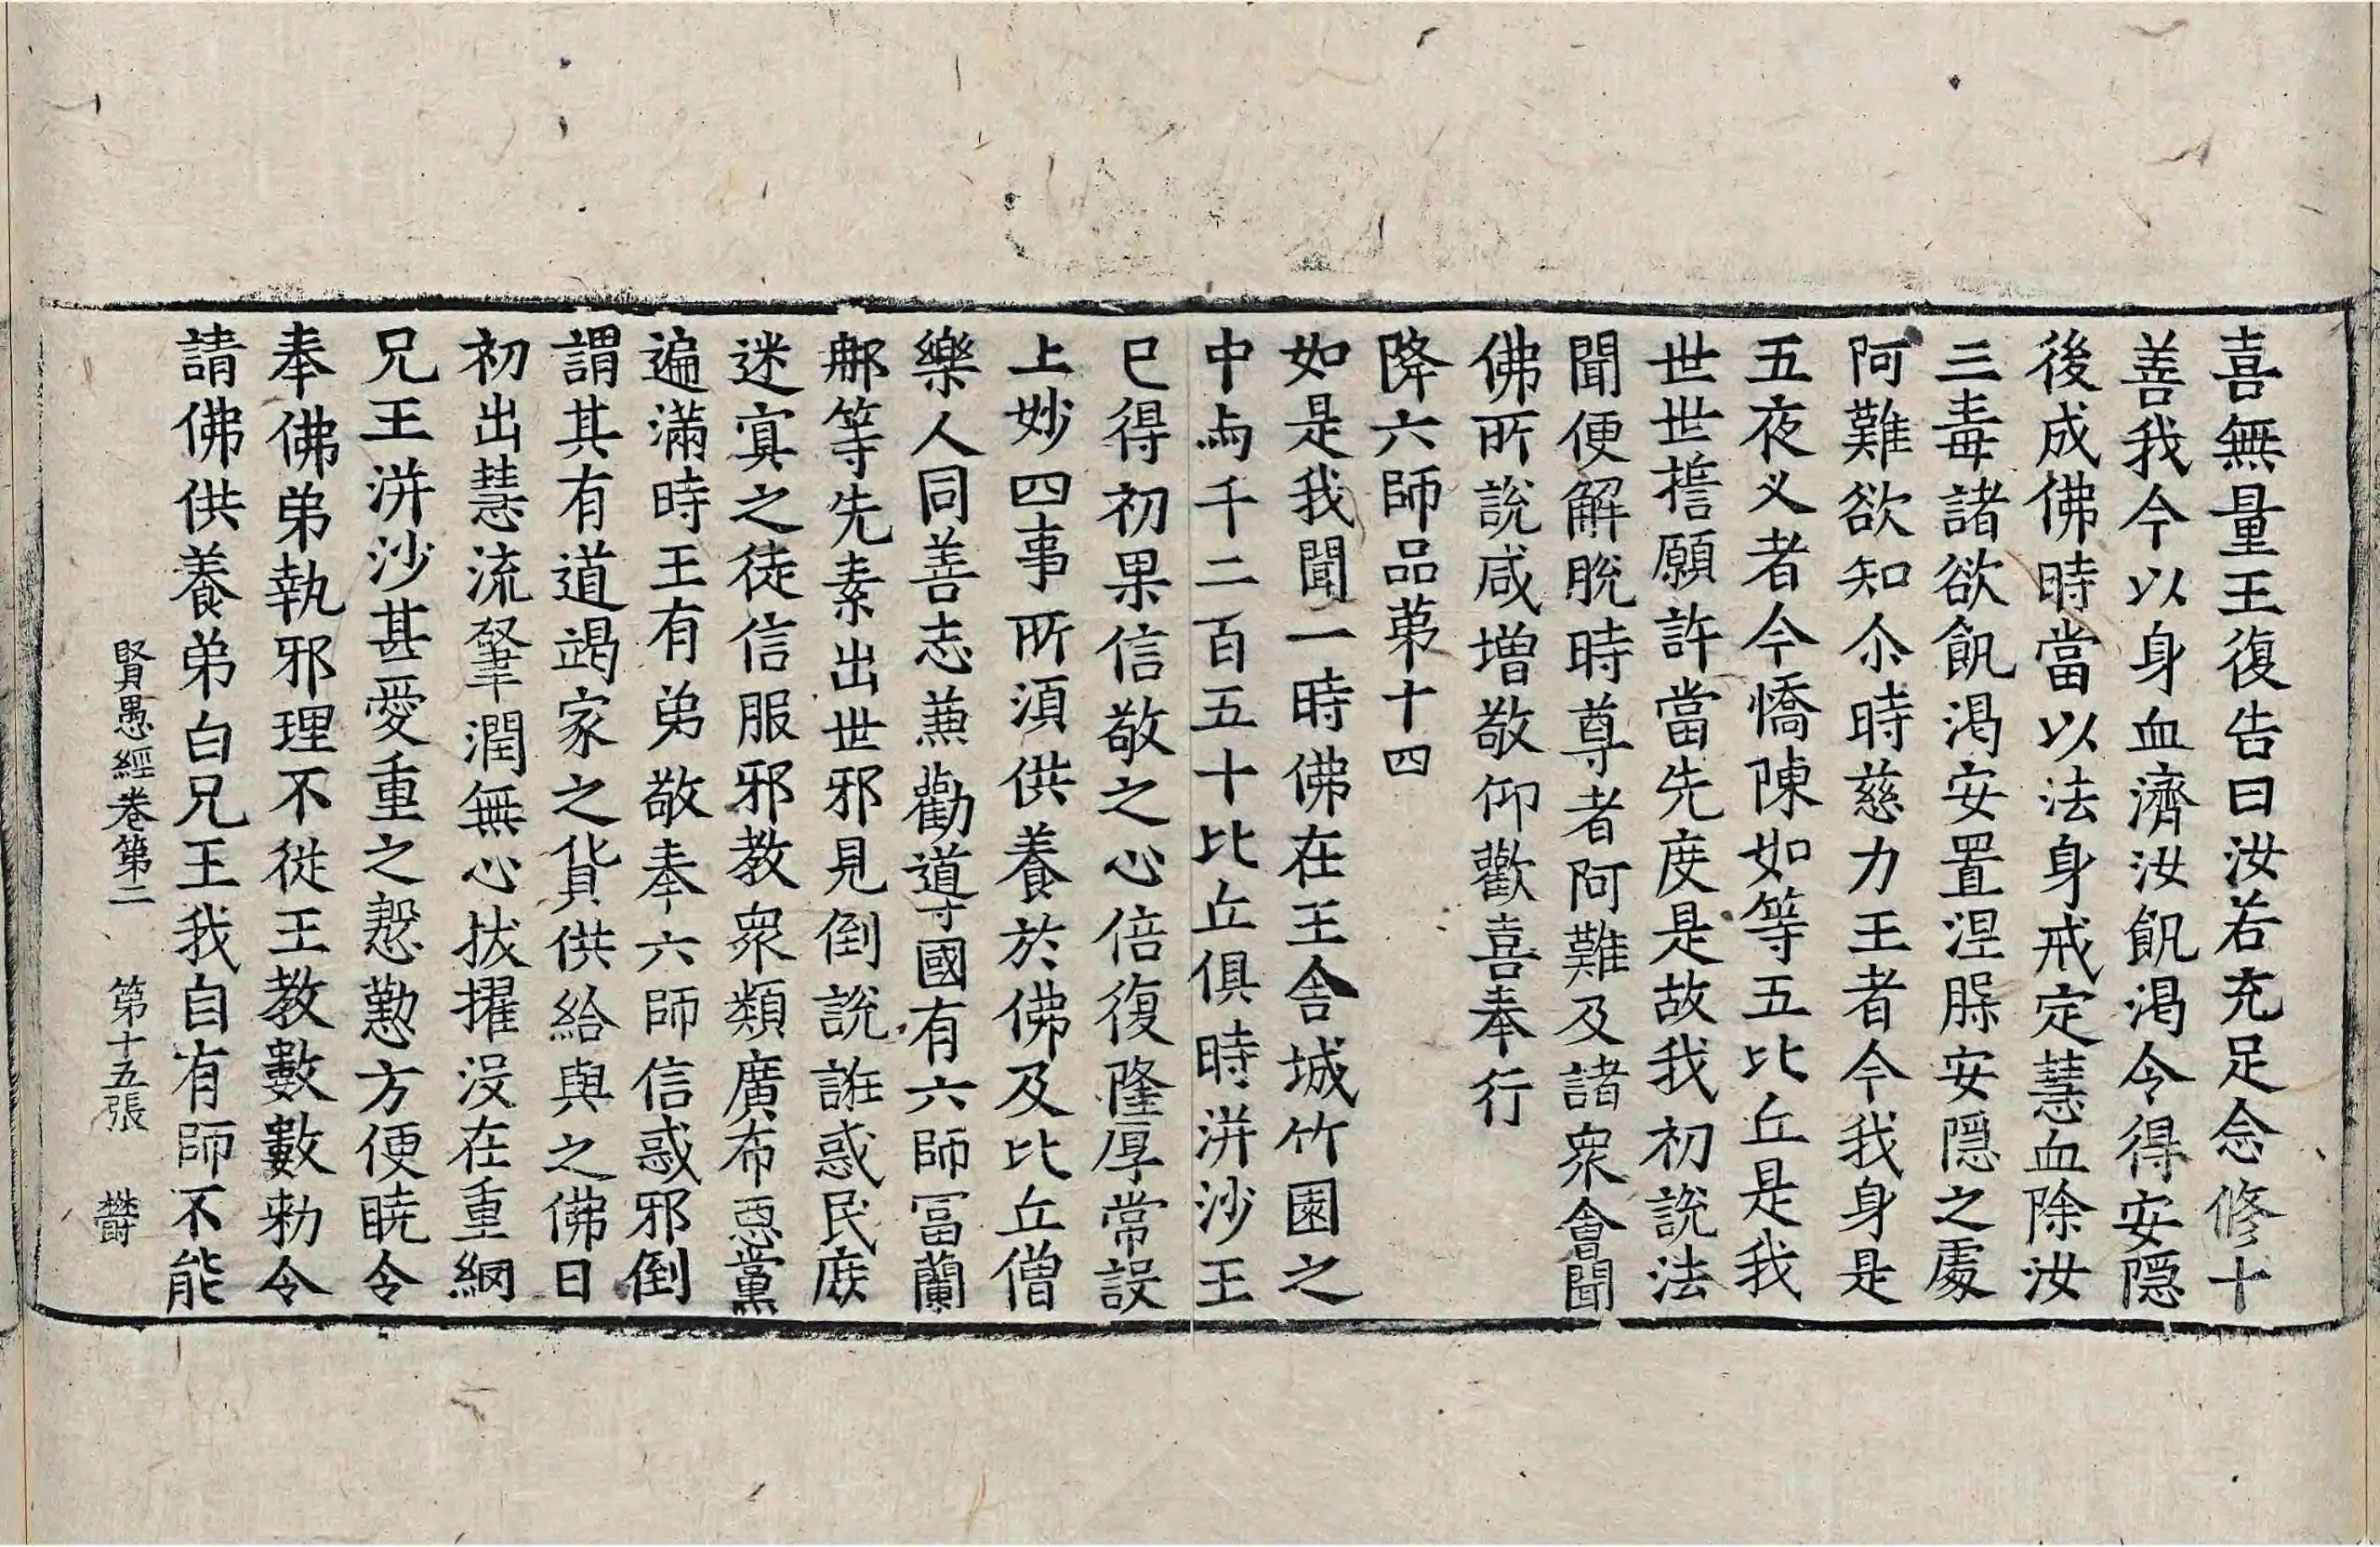 喜無量王復告曰汝若充足念修十
善我今以身血濟汝飢渴令得安隱
後成佛時當以法身戒定慧血除汝
三毒諸欲飢渴安置涅槃安隱之處
阿難欲知尒時慈力王者今我身是
五夜叉者今憍陳如等五比丘是我
世世誓願許當先度是故我初說法
聞便解脫時尊者阿難及諸衆會聞
佛所說咸增敬仰歡喜奉行
降六師品苐十四
如是我聞一時佛在王舍城竹園之
中与千二百五十比丘俱時洴沙王
已得初果信敬之心倍復隆厚常設
上妙四事所須供養於佛及比丘僧
樂人同善志兼勸導國有六師冨蘭
那等先素出世邪見倒說誑惑民庶
迷冥之徒信服邪教衆類廣布惡黨
遍滿時王有弟敬奉六師信惑邪倒
謂其有道竭家之貨供給與之佛日
初出慧流肇潤無心拔擢沒在重網
兄王洴沙甚愛重之慇懃方便曉令
奉佛弟執邪理不從王教數數勑令
請佛供養弟白兄王我自有師不能
賢愚經卷第二　第十五張　欝